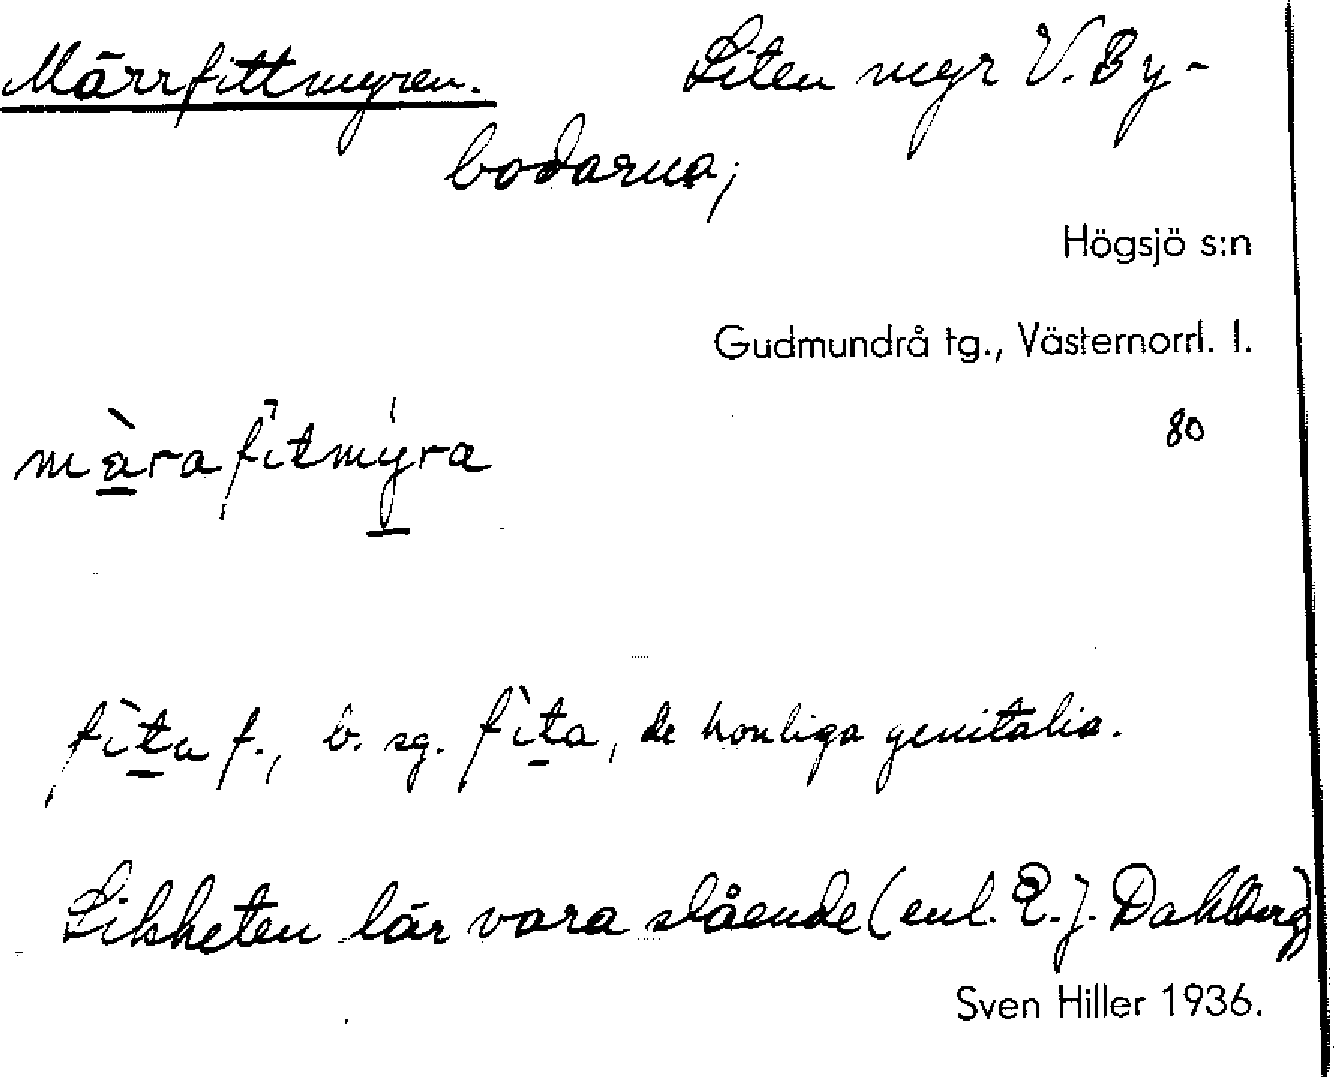 Märrfittmyren. Liten myr V. By-
bodarna;
Högsjö s:n
Gudmundrå tg., Västernorrl. l.
80
màrafìtmýra
fìta f., b. sg. fìta, de honliga genitalia.
Likheten lär vara slående (enl. E. J. Dahlberg)
Sven Hiller 1936.